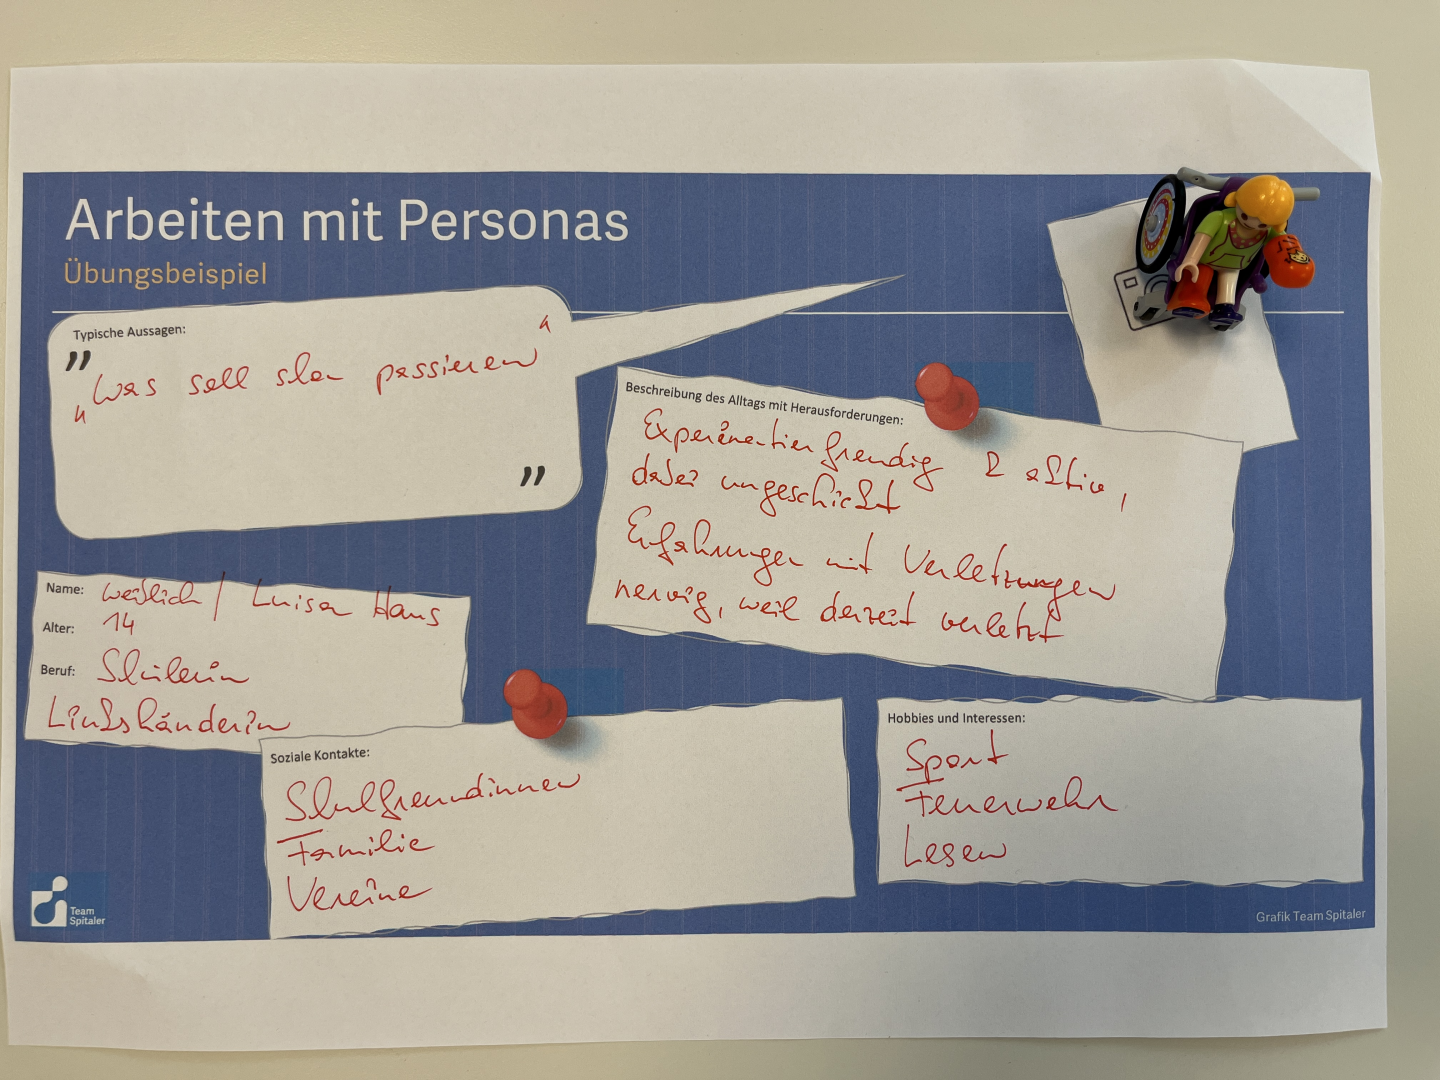 Arbeiten mit Personas
Übungsbeispiel
Typische Aussagen:
"
„Was soll schon passieren“
"
Beschreibung des Alltags mit Herausforderungen:
Experimentierfreudig & aktiv,
dabei ungeschickt
Erfahrungen mit Verletzungen
nervig, weil derzeit verletzt
Name: weiblich / Luisa Haus
Alter: 14
Beruf: Schülerin
Linkshänderin
Soziale Kontakte:
Schulfreundinnen
Familie
Vereine
Hobbies und Interessen:
Sport
Feuerwehr
Lesen
Team
Spitaler
Grafik Team Spitaler